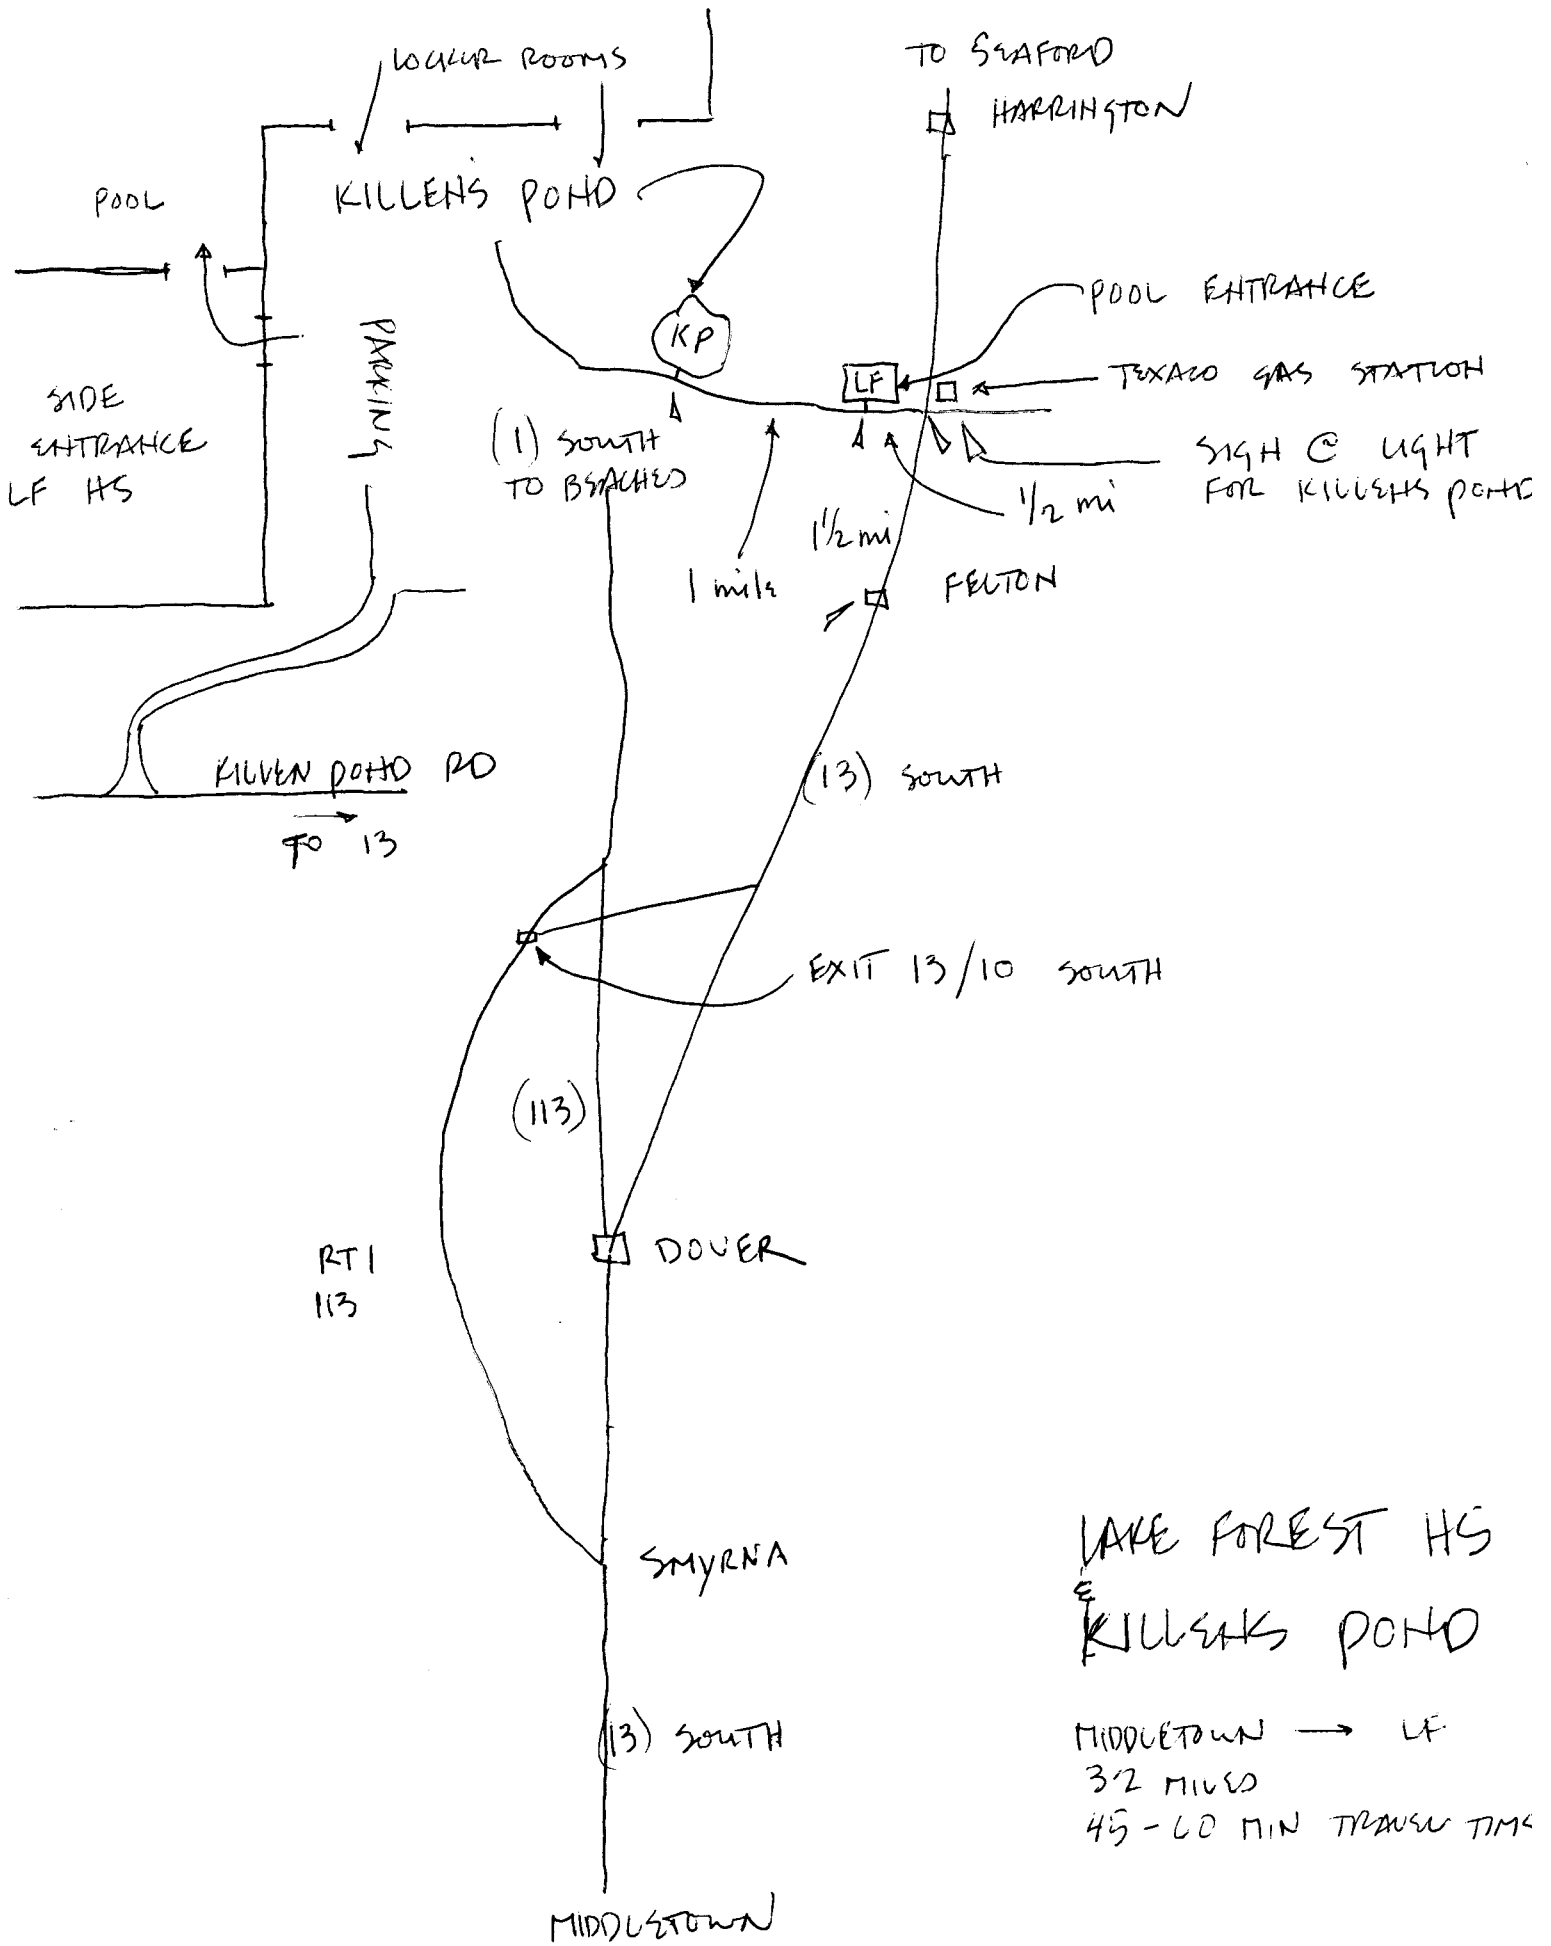 LOCKER ROOMS
TO SEAFORD
HARRINGTON
POOL
KILLENS POND
KP
POOL ENTRANCE
LF
TEXACO GAS STATION
PARKING
SIDE
ENTRANCE
LF HS
(1) SOUTH
TO BEACHES
SIGN @ LIGHT
FOR KILLENS POND
1/2 mi
1 1/2 mi
1 mile
FELTON
KILLEN POND RD
TO 13
(13) SOUTH
EXIT 13/10 SOUTH
(113)
RT 1
113
DOVER
SMYRNA
LAKE FOREST HS
&
KILLENS POND
(13) SOUTH
MIDDLETOWN → LF
32 MILES
45-60 MIN TRAVEL TIME
MIDDLETOWN